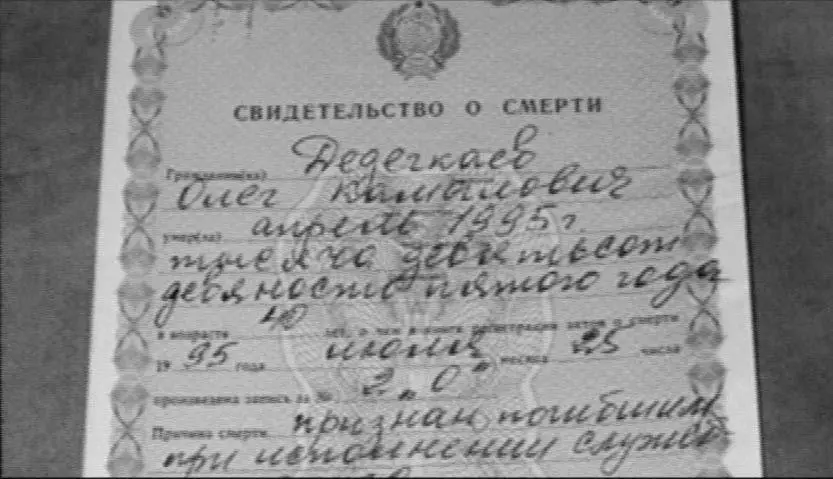 СВИДЕТЕЛЬСТВО О СМЕРТИ
Гражданин(ка) Дедегкаев
Олег Камылович
умер(ла) апрель 1995 г.
тысяча девятьсот
девяносто пятого года
в возрасте 40 лет, о чем в книге регистрации актов о смерти
19 95 года июля месяца 25 числа
произведена запись за № 2„0"
Причина смерти признан погибшим
при исполнении служеб-